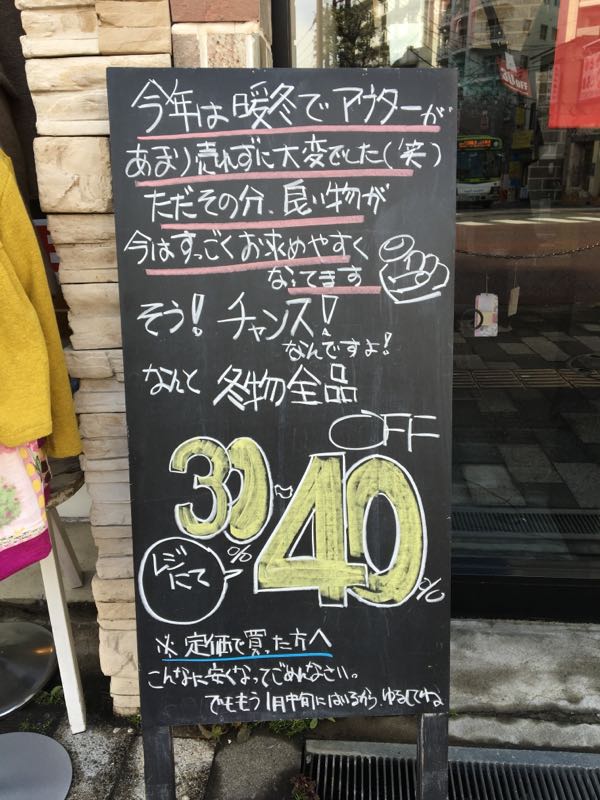 今年は暖冬でアウターが
あまり売れずに大変でした(笑)
ただその分、良い物が
今はすっごくお求めやすく
なってます
そう!チャンス!
なんですよ!
なんと 冬物全品
OFF
30%~40%
レジにて
※定価で買った方へ
こんなに安くなってごめんなさい。
でももう1月中旬にはいるから、ゆるしてね